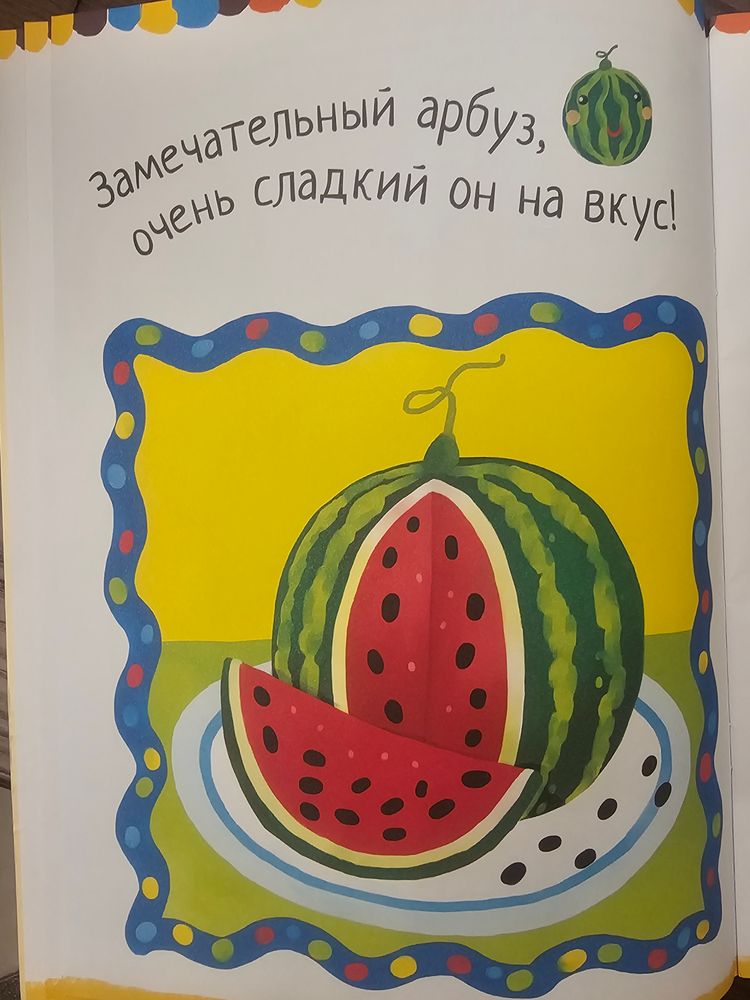 Замечательный арбуз,
очень сладкий он на вкус!